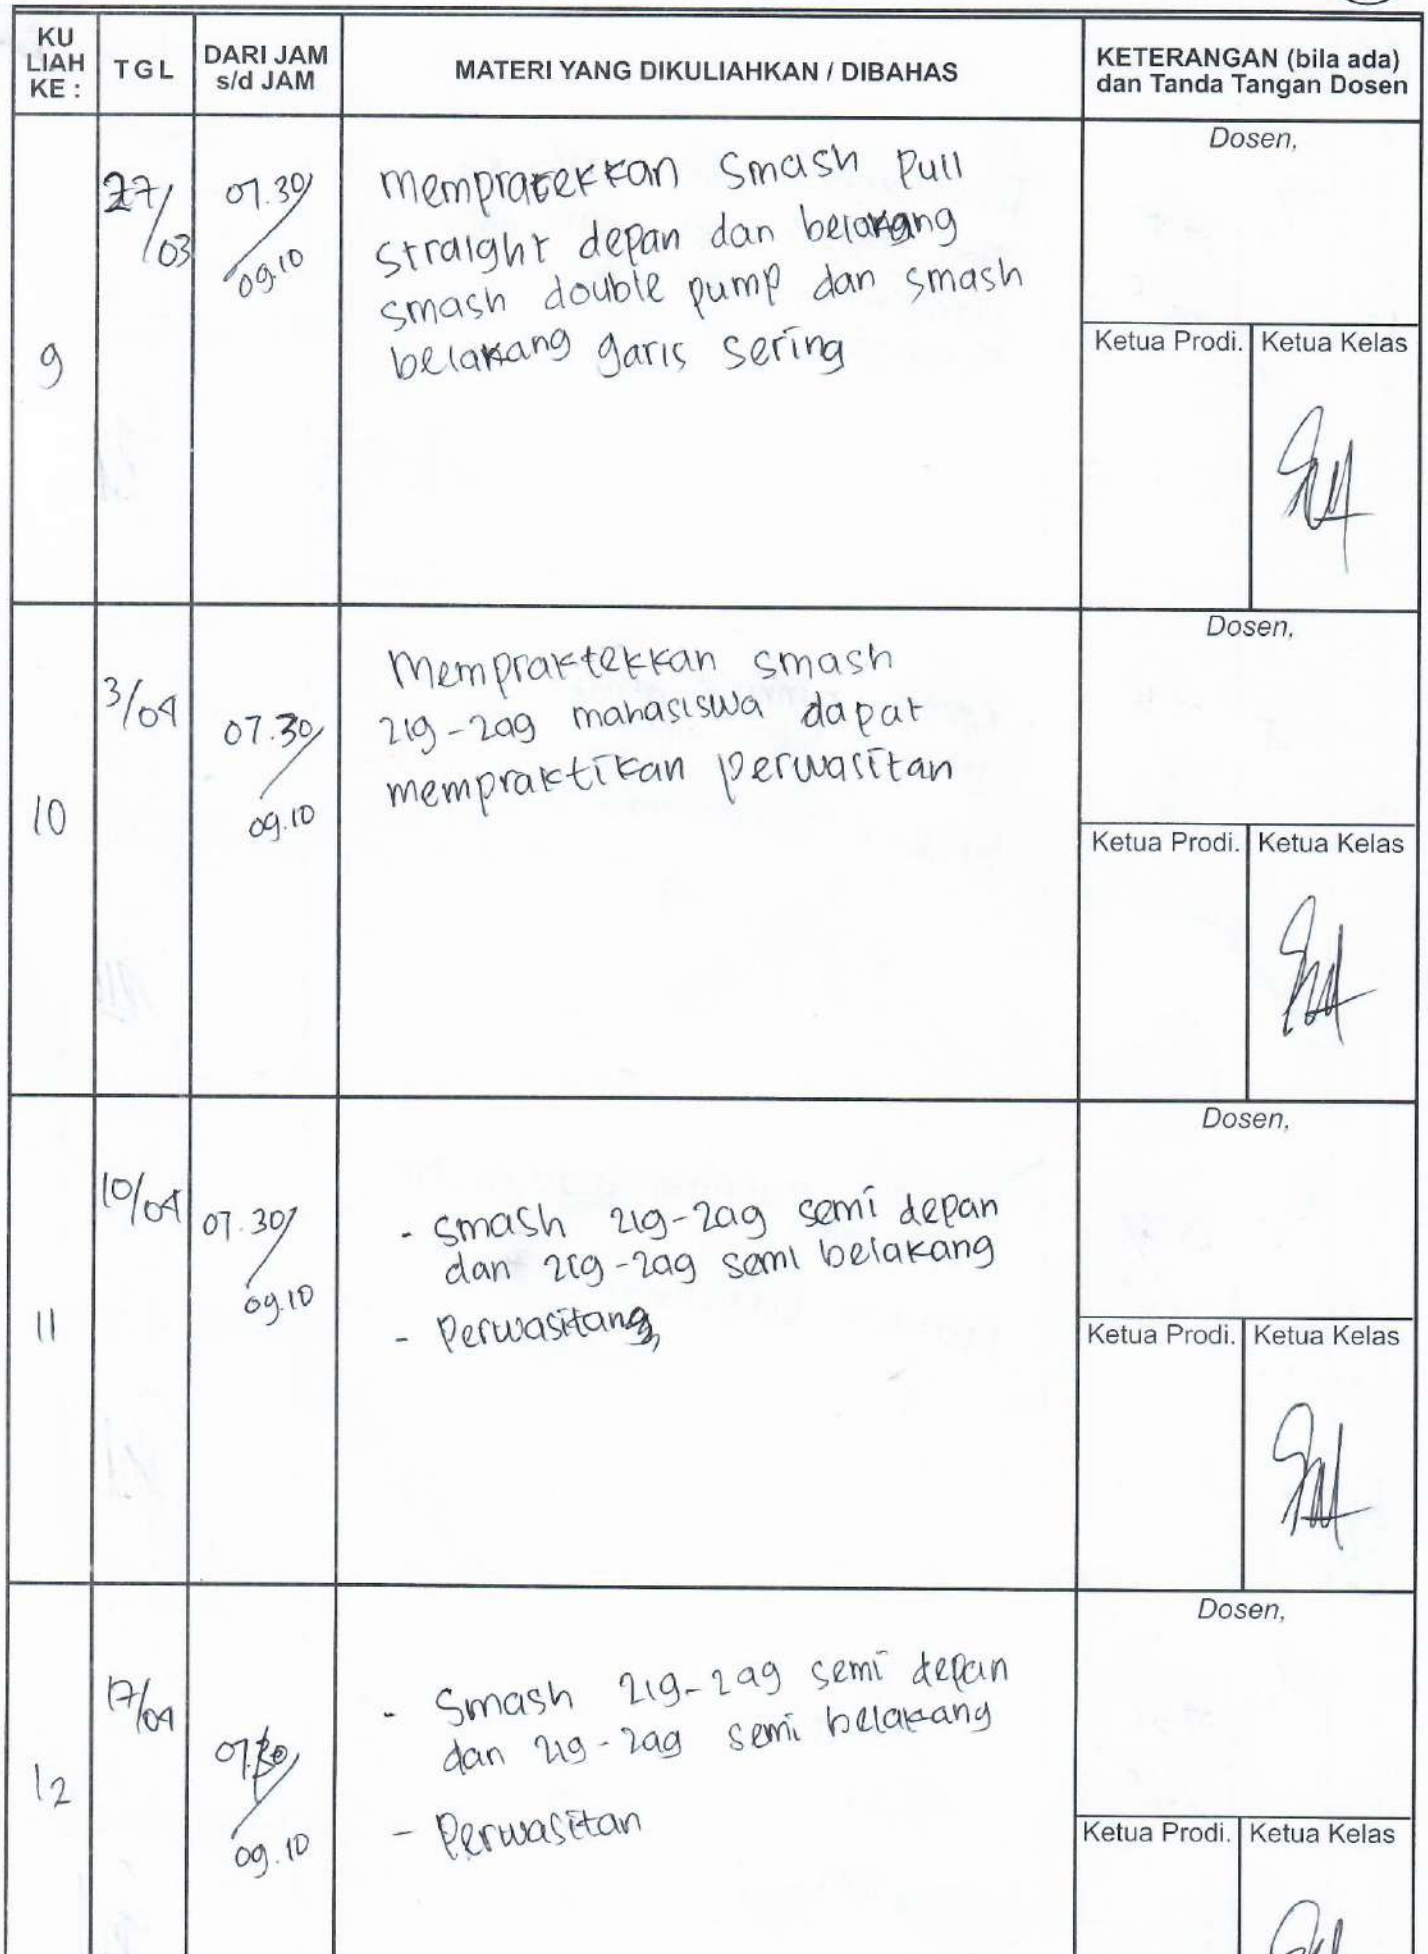 KU LIAH KE :
TGL
DARI JAM s/d JAM
MATERI YANG DIKULIAHKAN / DIBAHAS
KETERANGAN (bila ada) dan Tanda Tangan Dosen
9
27/03
07.30/09.10
Mempratekkan Smash Pull
straight depan dan belakang
smash double pump dan smash
belakang garis sering
Dosen,
Ketua Prodi.
Ketua Kelas
10
3/04
07.30/09.10
Mempraktekkan smash
zig-zag mahasiswa dapat
mempraktikan perwasitan
Dosen,
Ketua Prodi.
Ketua Kelas
11
10/04
07.30/09.10
- Smash zig-zag semi depan
dan zig-zag semi belakang
- Perwasitang
Dosen,
Ketua Prodi.
Ketua Kelas
12
17/04
07.30/09.10
- Smash zig-zag semi depan
dan zig-zag semi belakang
- Perwasitan
Dosen,
Ketua Prodi.
Ketua Kelas